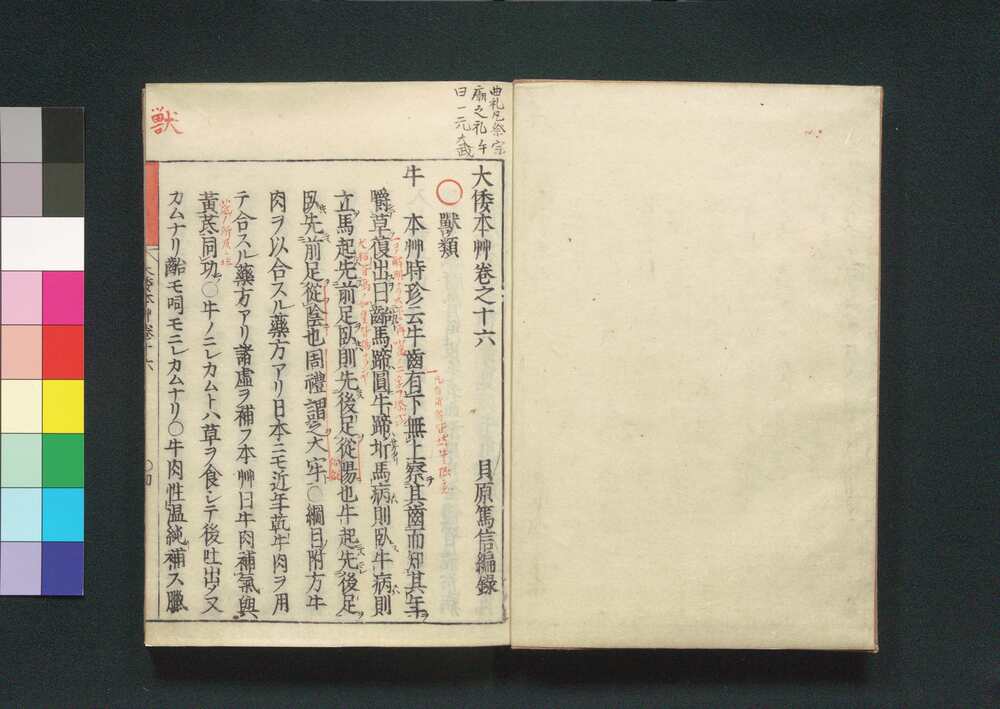 曲礼凡祭宗
廟之礼牛
曰一元大武
獣
大倭本艸巻之十六　貝原篤信編錄
獸類
牛　本艸時珍云牛齒有下無上察其齒而知其年
嚼草復出曰齝馬蹄圓牛蹄坼馬病則臥牛病則
立馬起先前足臥則先後足從陽也牛起先後足
臥先前足從陰也周禮謂之大牢○綱目附方牛
肉ヲ以合スル藥方アリ日本ニモ近年乾牛肉ヲ用
テ合スル藥方アリ諸虛ヲ補フ本艸曰牛肉補氣與
黃芪同功○牛ノニレカムトハ草ヲ食シテ後吐出シ又
カムナリ齝モ呞モニレカムナリ○牛肉性温純補ス臘
大倭本艸卷十六